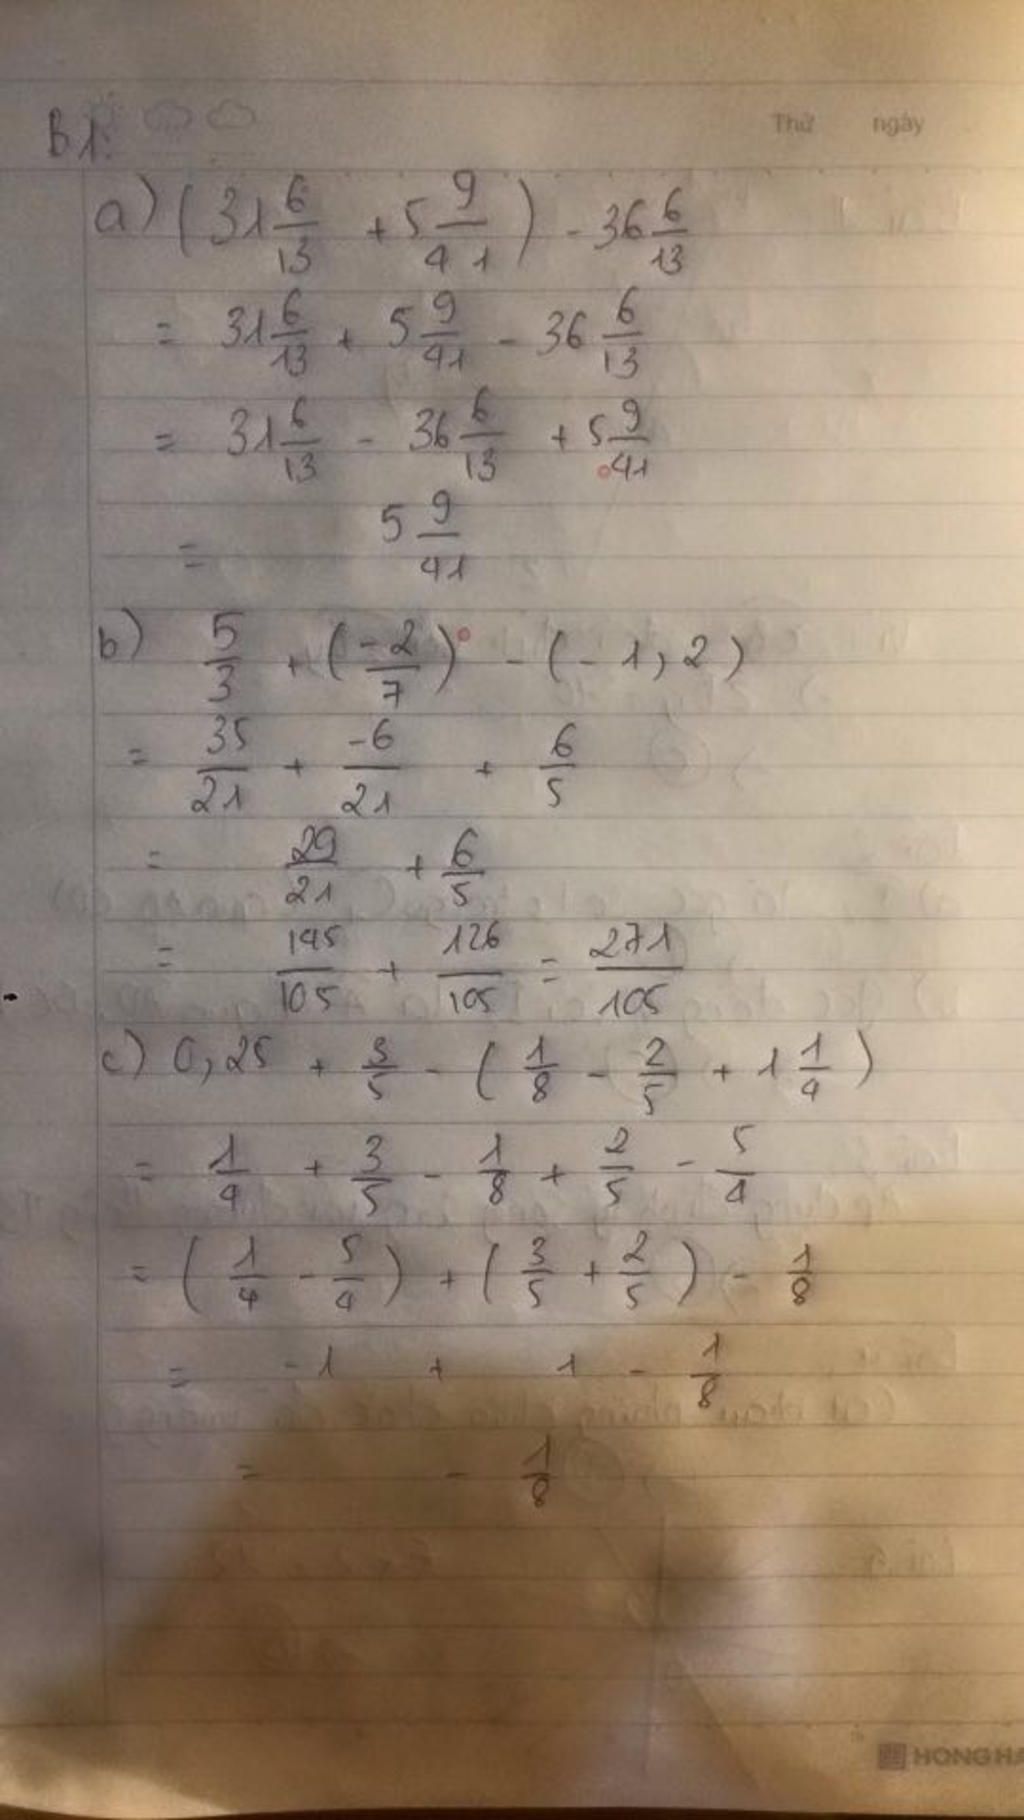 Thứ ngày
B1:
a) (31 6/13 + 5 9/41) - 36 6/13
= 31 6/13 + 5 9/41 - 36 6/13
= 31 6/13 - 36 6/13 + 5 9/41
= 5 9/41
b) 5/3 + (-2/7) - (-1,2)
= 35/21 + -6/21 + 6/5
= 29/21 + 6/5
= 145/105 + 126/105 = 271/105
c) 0,25 + 3/5 - (1/8 - 2/5 + 1 1/4)
= 1/4 + 3/5 - 1/8 + 2/5 - 5/4
= (1/4 - 5/4) + (3/5 + 2/5) - 1/8
= -1 + 1 - 1/8
= - 1/8
HONG HA